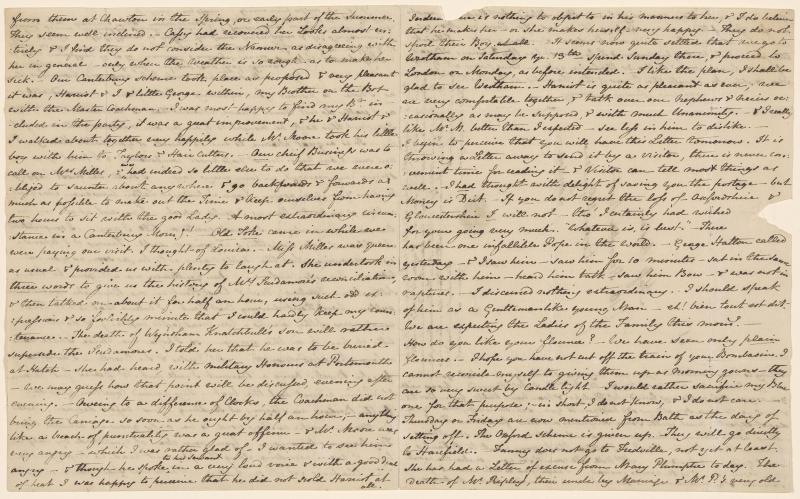 from them at Chawton in the Spring, or early part of the Summer.
They seem well inclined. - Cassy had recovered her Looks almost en:
:tirely & I find they do not consider the Namur as disagreeing with
her in general - only when the Weather is so rough as to make her
sick. - Our Canterbury scheme took place as proposed & very pleasant
it was, Harriot & I & little George within, my Brother on the Box
with the Master Coachman. - I was most happy to find my Br. in
:cluded in the party, it was a great improvement, & he & Harriot &
I walked about together very happily while Mr. Moore took his little
boy with him to Taylors & Hair Cutters. - Our cheif Business was to
call on Mrs. Milles, & had indeed so little else to do that we were o:
:bliged to saunter about anywhere & go backwards & forwards as
much as possible to make out the Time & keep ourselves from having
two hours to sit with the good Lady. A most extraordinary circum:
:stance in a Canterbury Morng.! Old Toke came in while we
were paying our visit. I thought of Louisa. - Miss Milles was queer
as usual & provided us with plenty to laugh at. She undertook in
three words to give us the history of Mrs. Scudamore's reconciliation,
& then talked on about it for half an hour, using such odd ex:
:pressions & so foolishly minute that I could hardly keep my coun:
:tenance. - The death of Wyndham Knatchbull's son will rather
supersede the Scudamores. I told her that he was to be buried
at Hatch - She had heard, with military Honours at Portsmouth
- We may guess how that point will be discussed, evening after
evening. - Oweing to a difference of Clocks, the Coachman did not
bring the Carriage so soon as he ought by half an hour; - anything
like a breach of punctuality was a great offence - & Mr. Moore was
very angry - which I was rather glad of - I wanted to see him
angry - & though he spoke to his Servant in a very loud voice & with a good deal
of heat I was happy to perceive that he did not scold Harriot at
all.
Indeed is nothing to object to in his manners to her, & I do beleive
that he makes her - or she makes herself - very happy. - They do not
spoil their Boy at all. It seems now quite settled that we go to
Wrotham on Saturday ye 13th. spend Sunday there, & proceed to
London on Monday, as before intended. - I like the plan, I shall be
glad to see Wrotham. - Harriot is quite as pleasant as ever; we
are very comfortable together, & talk over our Nephews & Neices oc:
:casionally as may be supposed, & with much Unanimity - & I really
like Mr. M. better than I expected - see less in him to dislike. -
I begin to perceive that you will have this Letter tomorrow. It is
throwing a Letter away to send it by a visitor, there is never con:
:venient time for reading it - & Visitor can tell most things as
well. - I had thought with delight of saving you the postage - but
Money is Dirt. - If you do not regret the loss of Oxfordshire &
Gloucestershire I will not - tho' I certainly had wished
for your going very much. "Whatever is, is best." - There
has been one infallible Pope in the World. - George Hatton called
yesterday - & I saw him - saw him for 10 minutes - sat in the same
room with him - heard him talk - saw him Bow - & was not in
raptures. - I discerned nothing extraordinary. - I should speak
of him as a Gentlemanlike young Man - eh! bien tout est dit.
We are expecting the Ladies of the Family this morng. -
How do you like your Flounce? - We have seen only plain
Flounces. - I hope you have not cut off the train of your Bombasin. I
cannot reconcile myself to giving them up as Morning gowns - they
are so very sweet by Candle light. - I would rather sacrifice my Blue
one for that purpose; - in short, I do not know, & I do not care. -
Thursday or Friday are now mentioned from Bath as the day of
setting off. The Oxford Scheme is given up. They will go directly
to Harefield. - Fanny does not go to Fredville, not yet at least.
She has had a Letter of excuse from Mary Plumptre to day. The
death of Mr. Ripley, their uncle by Marriage & Mr. P.s very old